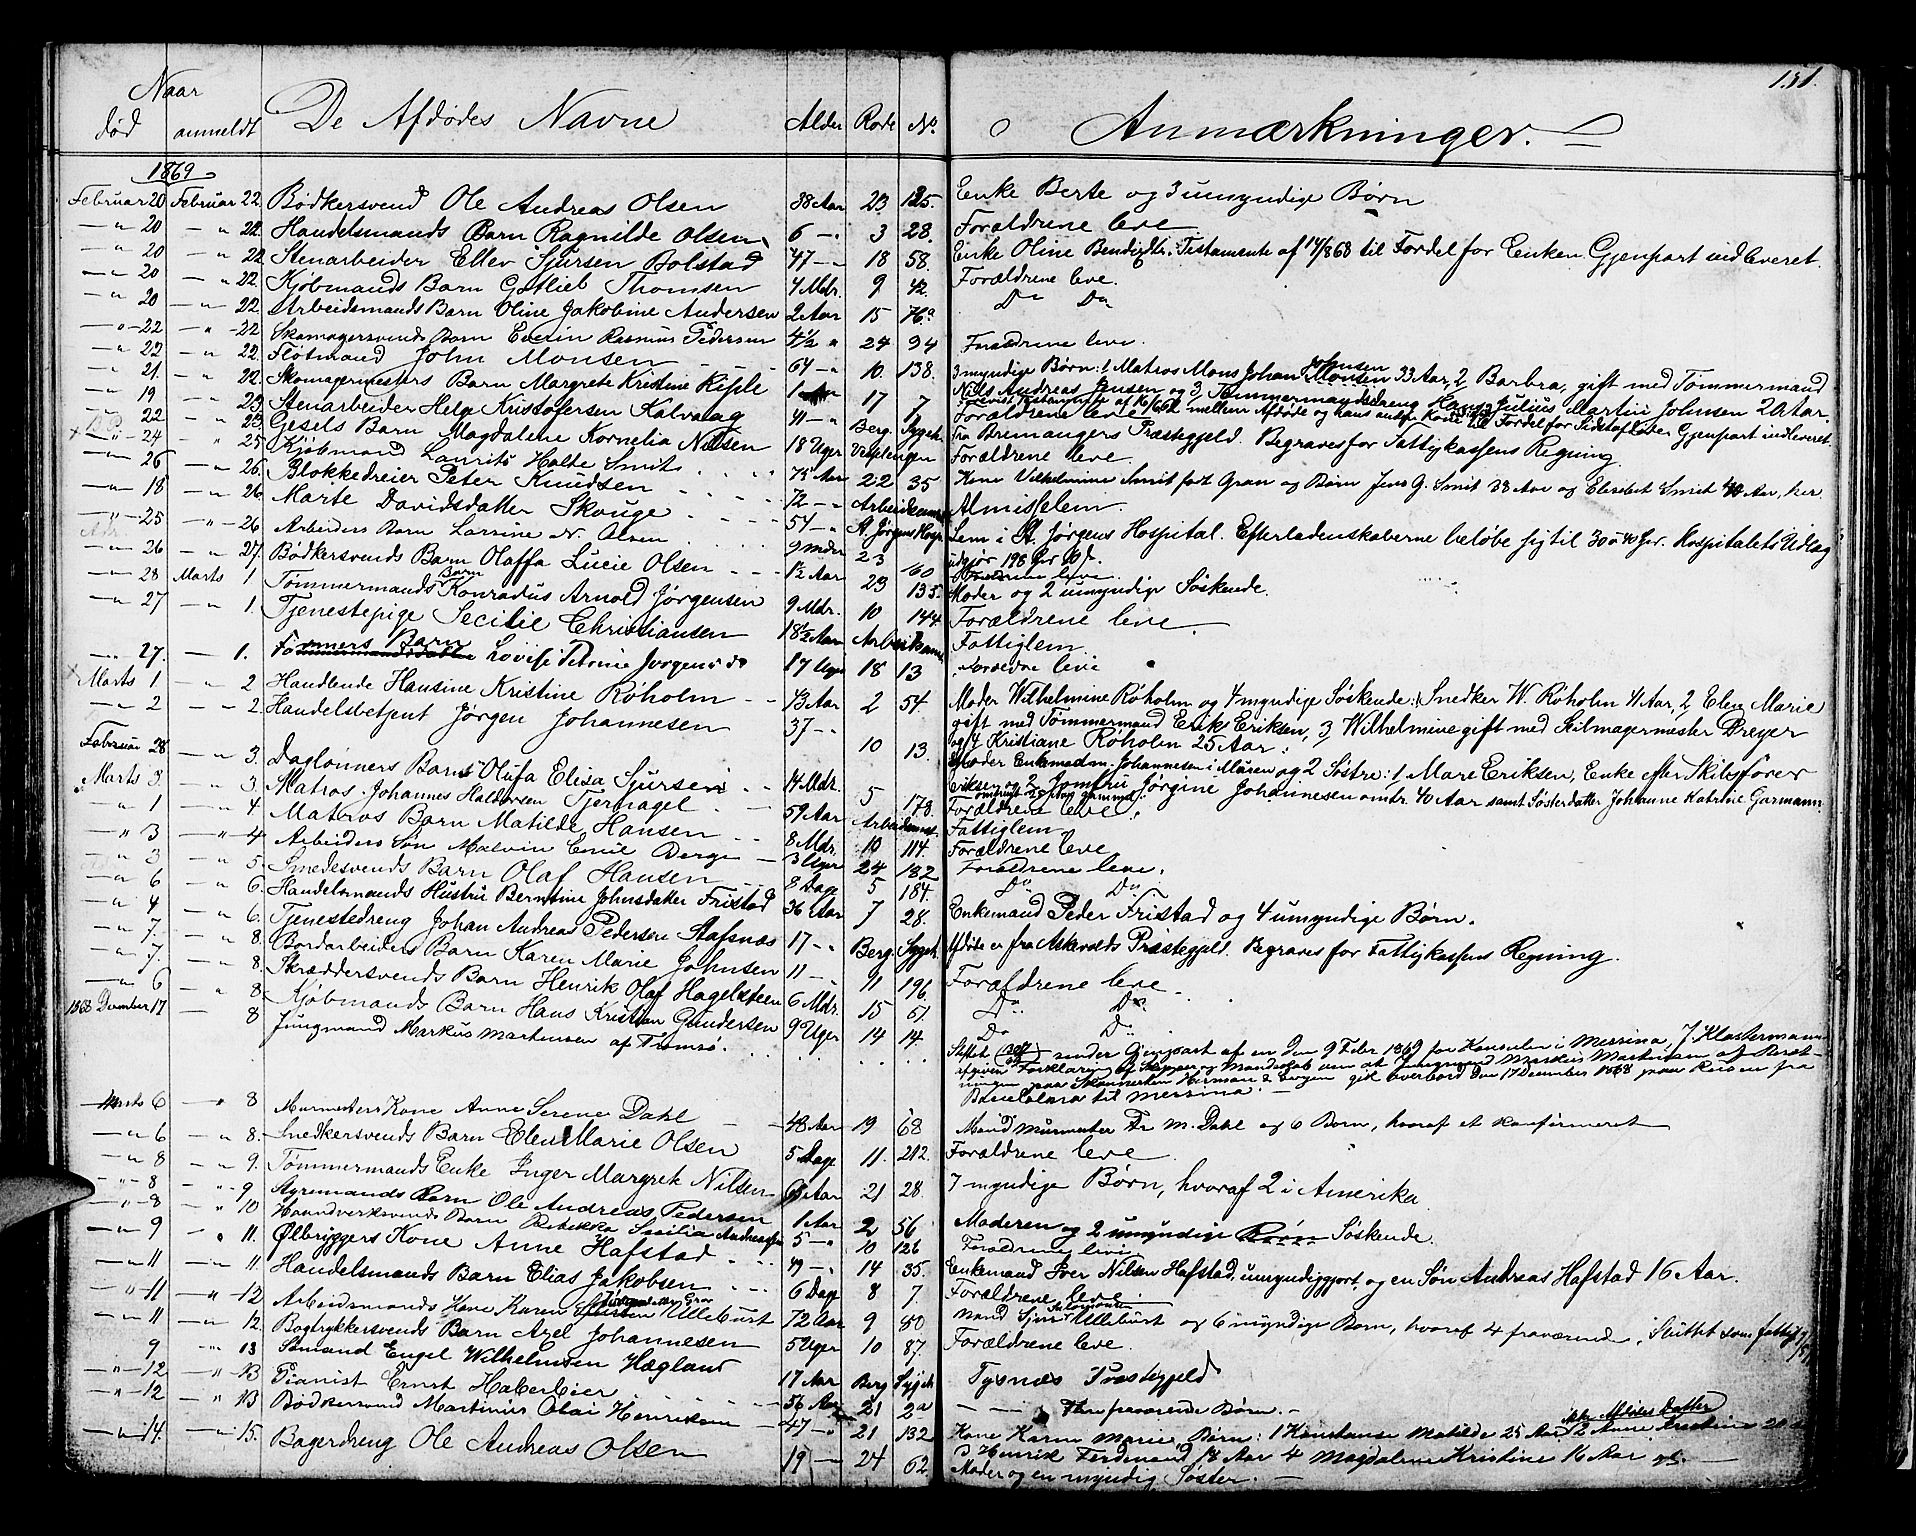 151.
Naar
død anmeldt De Afdødes Navne Alder Rode No. Anmærkninger.
1869
Februar 20 Februar 22. Bødkersvend Ole Andreas Olsen 38 Aar 23 125. Enke Berte og 3 umyndige Børn
— " 20 — " 22. Handelsmands Barn Ragnilde Olsen 6 — " 3 28. Forældrene leve
— " 20 — " 22. Stenarbeider Ellev Sjursen Bolstad 47 — " 18 58. Enke Oline Bendixdtr. Testamente af 17/8 68 til Fordel for Enken Gjenpart indleveret.
— " 20 — " 22. Kjøbmands Barn Gotlieb Thomsen 4 Mdr. 9 42. Forældrene leve.
— " 20 — " 22. Arbeidsmands Barn Oline Jakobine Andersen 2 Aar 15 76a Do Do
— " — 22 — " — 22. Skomagersvends Barn Everin Rasmus Pedersen 4 1/2 " 24 94 Forældrene leve.
— " 22 — " 22. Fløtmand John Monsen 64 — " 10. 138. 3 myndige Børn: 1 Matros Mons Johan Monsen 33 Aar, 2 Barbra, gift med Tømmermand
Nils Andreas Jensen, og 3, Tømmermandsdreng Hans Julius Martin Johnsen 20 Aar.
— " 21 — " 22. Skomagermesters Barn Margrete Kristine Reple 1 17 7 Forældrene leve
— " 19 — " 23. Stenarbeider Helge Kristofersen Kalvaag 41 — " Berg. Sygeh. Fra Bremangers Præstegjeld. Begraves for Fattigkassens Regning.
— " 22 — " 23. Gesels Barn Magdalene Kornelia Nilsen 18 Uger Forældrene leve.
— " — 24 — " 25 Kjøbmand Laurits Holte Smit 75 Aar 22 35 Kone Vilhelmine Smit født Gran og Børn Jens G. Smit 38 Aar og Elisebet Smit 40 Aar, her.
— " 26 — " 26. Blokkedreier Peter Knudsen 72 — " Almislem.
— " 18 — " 26. Marte Davidsdatter Skouge 54 — " St. Jørgens Hosp. Lem i St. Jørgens Hospital. Efterladenskaberne beløbe sig til 30 a 40 Ør. Hospitalets Udlæg
— " — 25 — " — 26 Arbeiders Barn Larsine N. Olsen 9 Mdr 23 60 Forældrene leve.
— " 26 — " 27. Bødkersvends Barn Olaffa Lucie Olsen 1 1/2 Aar 23 135. Moder og 2 umyndige Søskende.
— " 28 Marts 1 Tømmermands Barn Konradus Arnold Jørgensen 9 Mdr. 10 144 Forældrene leve.
— " 27 — " 1. Tjenestepige Secilie Christiansen 18 1/2 Aar Fattiglem
— " 27. — 1. Lovise Petrine Jørgensen 17 Uger 18 13 Forældre leve
Marts 1 — " 2 Handlende Hansine Kristine Røholm 43 Aar 2 54. Moder Wilhelmine Røholm og 4 myndige Søskende: 1 Snedker W. Røholm 41 Aar, 2 Elen Marie
gift med Tømmermand Erik Eriksen, 3 Wilhelmine gift med Hilmagermester Dreyer
og 4 Kristiane Røholm 25 Aar.
— " 2 — " 2. Handelsbetjent Jørgen Johannesen 37 — " 10 13. Moder Enkemadm. Johannesen i Muren og 2 Søstre: 1 Mare Eriksen, Enke efter Skibsfører
Eriksen og 2 Jomfru Jørgine Johannesen omtr. 40 Aar samt Søsterdatter Johanne Katrine Garmann
Februar 28 — " 3. Dagløners Barn Olufa Elisa Sjursen 14 Mdr. 5 178. Forældrene leve.
Marts 3. — " 3. Matros Johannes Haldorsen Tjernagel 59 Aar Fattiglem
— " 1 — " 4 Matros Barn Matilde Hansen 8 Mdr. 10 114. Forældrene leve
— " 3 — " 4 Arbeiders Søn Malvin Emil Berge 3 Uger 24 182 Forældrene leve.
— " 3 — " 5. Smedesvends Barn Olaf Hansen 8 Dage 5 184. Do Do
— " 6 — " 6. Handelsmands Hustru Berntine Johnsdatter Fristad 36 Aar 7 28. Enkemand Peder Fristad og 4 umyndige Børn.
— " 4 — " 6. Tjenestedreng Johan Andreas Pedersen Stafsnæs 17 — " Berg. Sygeh. Afdøde er fra Askvolds Præstegjeld. Begraves for Fattigkassens Regning.
— " 7. — " 8. Bordarbeiders Barn Karen Marie Johnsen 11 — 11 196. Forældrene leve
— " 7. — " 8. Skræddersvends Barn Henrik Olaf Hagelsteen 6 Mdr. 15 61. Do Do
— " 6 — " 8. Kjøbmands Barn Hans Kristian Gundersen 9 Uger 14 14. Do Do
1868 December 17 — 8 Jungmand Markus Martensen af Tromsø. Stiftet sender Gjenpart af en den 9 Febr 1869 for Konsulen i Messina, J Klostermann
afgiven Forklaring af Skipper og Mandskab om at Jungmand Markus Martensen af
paa Skonnerten Herman af Bergen gik overbord den 17 December 1868 paa Reisen fra
til Messina.
Marts 6 — " 8 Murmesters Kone Anne Serene Dahl 48 Aar 19 68 Mand Murmester Fr M. Dahl og 6 Børn, hvoraf et konfirmeret
— " 6 — " 8. Snedkersvends Barn Elen Marie Olsen 5 Dage 11. 212. Forældrene leve
— " 8 — " 9. Tømmermands Enke Inger Margrete Nilsen Aar 21 28. 7 myndige Børn, hvoraf 2 i Amerika
— " — 8 — " — 9 Styremands Barn Ole Andreas Pedersen 1 Aar 2 56 Moderen og 2 umyndige Børn Søskende.
— " — 8 " 10 Haandverksvends Barn Rebekka Secilia Andreassen 5 — " 10 126 Forældrene leve
— " 9 " 11. Ølbryggers Kone Anne Hafstad 49 — " 14 35. Enkemand Iver Nilsen Hafstad, umyndiggjort, og en Søn Andreas Hafstad 16 Aar.
— " 11 — " 11. Handelsmands Barn Elias Jakobsen 6 Dage 8 7 Forældrene leve
— " — 11 — " — 12 Arbeidsmands Kone Karen Ulleburst 72 Aar 9 80 Mand Sjur Ulleburst og 6 myndige Børn, hvoraf 4 fraværende. Sluttet som fattigt
— " 11 — " 12. Bogtrykkersvends Barn Axel Johannesen 5 Uger 10 87. Forældrene leve.
9 — " 13 Sømand Engel Wilhelmsen Hægland 17 Aar Berg Sygeh Tysnæs Præstegjeld
— " — 12 — " — 13 Pianist Ernst Haberbier 56 Aar 21 2a fraværende Børn.
— " — 12 — " 13 Bødkersvend Martinus Olai Henriksen 47 — " 21 132 Kone Karen Marie Børn: 1 Konstanse Matilde 25 Aar 2 Anne Kristine 20
3 Henrik Ferdinand 18 Aar 4 Magdalene Kristine 16 Aar
— " 14. — " 15. Bagerdreng Ole Andreas Olsen 19 — 24 62 Moder og en myndig Søster.